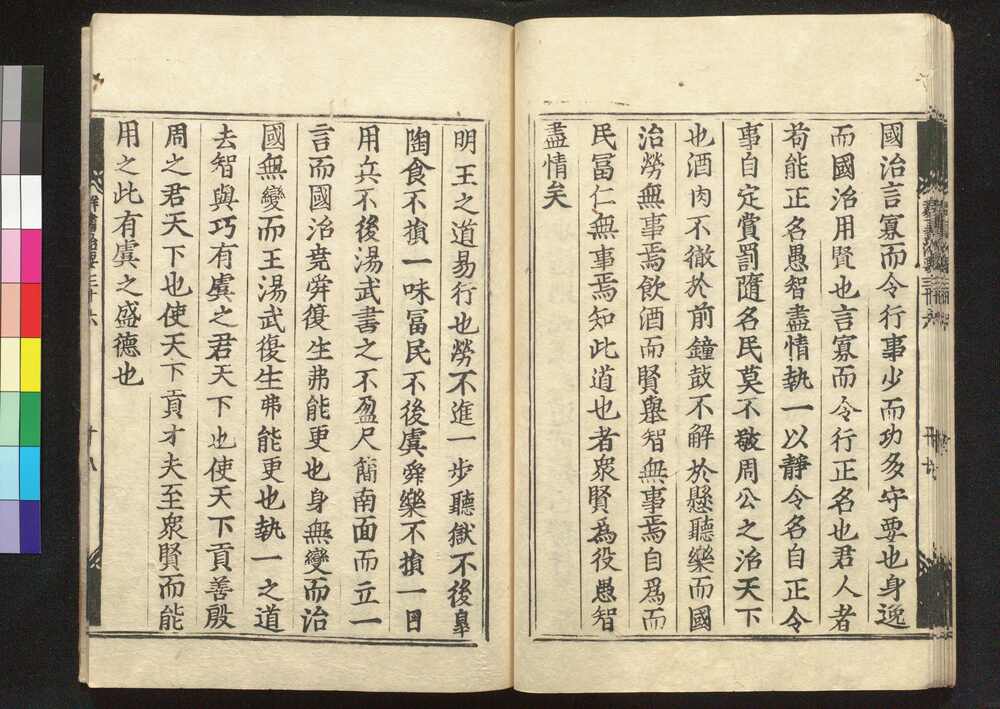 國治言寡而令行事少而功多守要也身逸
而國治用賢也言寡而令行正名也君人者
苟能正名愚智盡情執一以靜令名自正令
事自定賞罰隨名民莫不敬周公之治天下
也酒肉不徹於前鐘鼓不解於懸聽樂而國
治勞無事焉飲酒而賢舉智無事焉自爲而
民冨仁無事焉知此道也者衆賢為役愚智
盡情矣
明王之道易行也勞不進一步聽獄不後皐
陶食不損一味冨民不後虞舜樂不損一日
用兵不後湯武書之不盈尺簡南面而立一
言而國治堯舜復生弗能更也身無變而治
國無變而王湯武復生弗能更也執一之道
去智與巧有虞之君天下也使天下貢善殷
周之君天下也使天下貢才夫至衆賢而能
用之此有虞之盛德也
群書治要三十六
十八